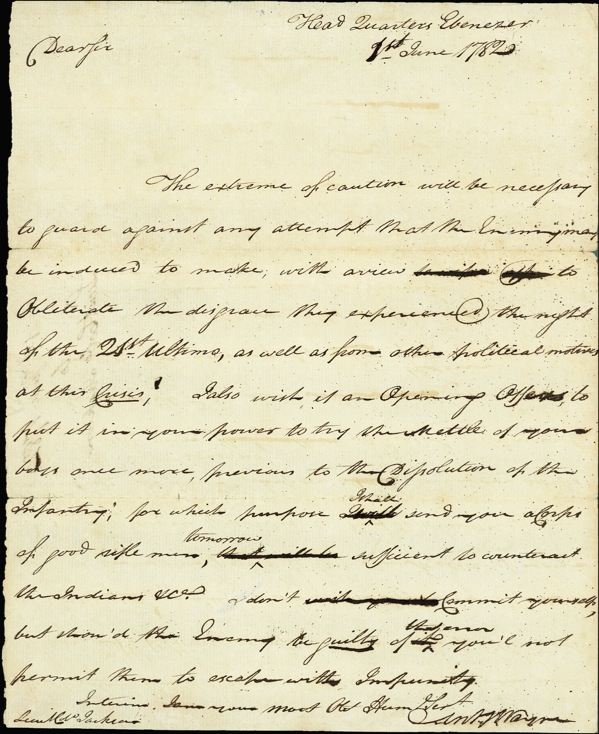 Head Quarters Ebenezer
1st June 1782
Dear Sir
The extreme of caution will be necessary
to guard against any attempt that the Enemy may
be induced to make, with a view to
Obliterate the disgrace they experienced the night
of the 21st Ultimo, as well as from other political motives
at this Crisis, I also wish, if an Opening Offers, to
put it in your power to try the Mettle of your
boys once more, previous to the Dissolution of the
Infantry; for which purpose I shall send you a Corps
of good rifle men, tomorrow, sufficient to counteract
the Indians &c. don't Commit yourself,
but shou'd the Enemy be guilty of you'l not
permit them to escape with Impunity
Interim I am your most Obt Huml Sert
Anty Wayne
Jackson